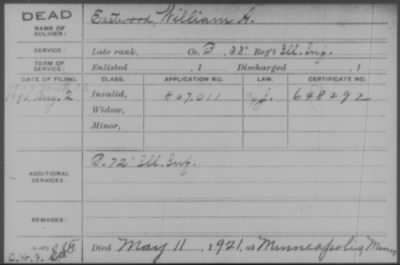 DEAD
NAME OF SOLDIER: Eastwood, William A.
SERVICE: Late rank, Co. P, 33" Reg't Ill. Inf.
TERM OF SERVICE: Enlisted , 1 Discharged , 1
DATE OF FILING. CLASS. APPLICATION NO. LAW. CERTIFICATE NO.
1890, Aug. 2 Invalid, 807,011 648292
Widow,
Minor,
ADDITIONAL SERVICES: P. 72" Ill. Inf.
REMARKS:
Died May 11, 1921, at Minneapolis, Minn